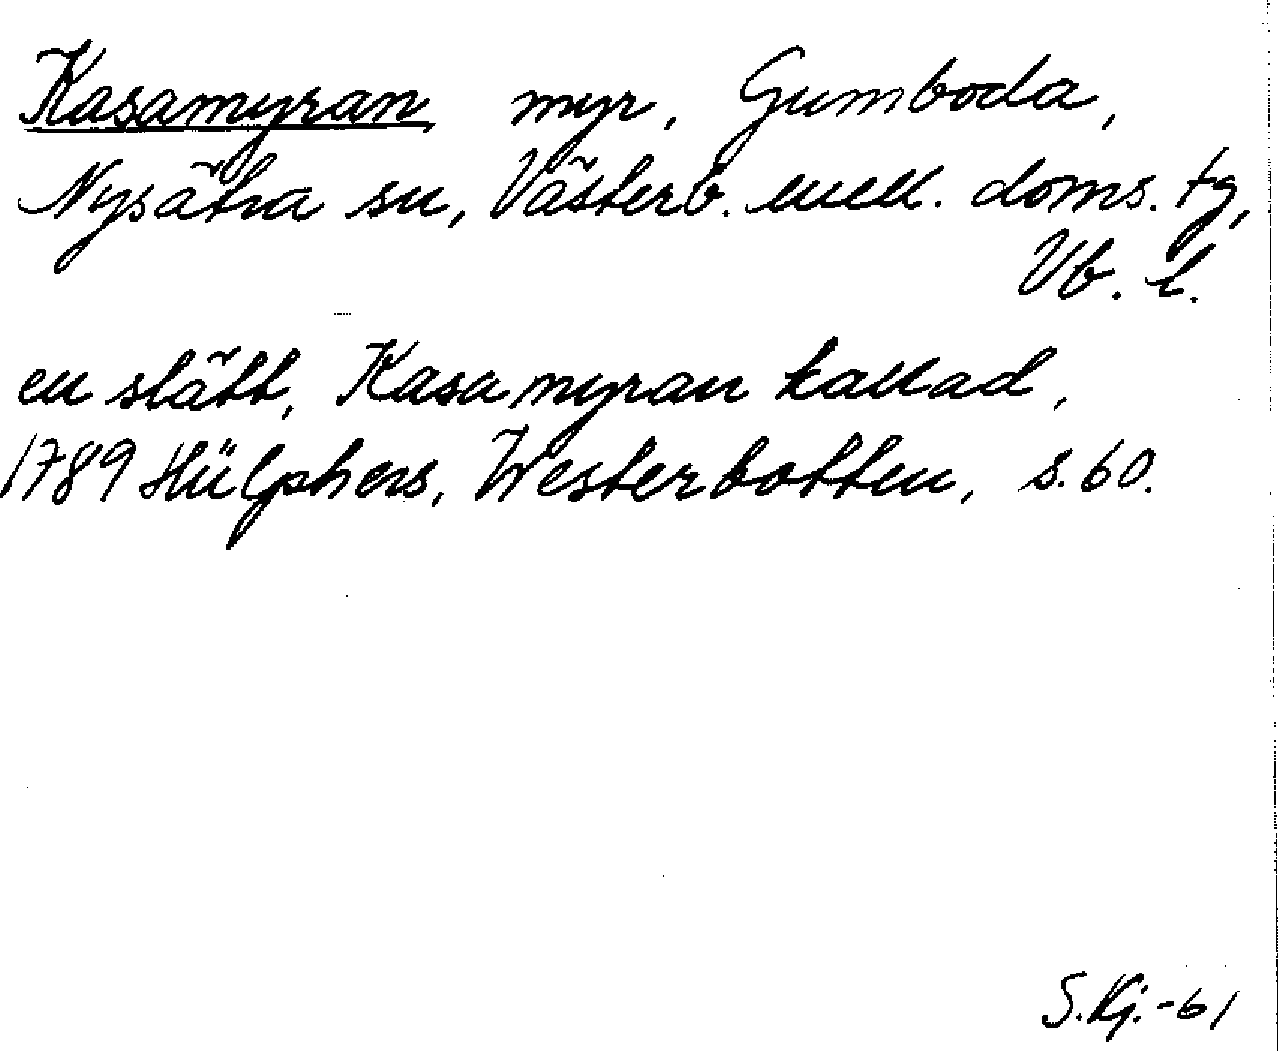 Kasamyran, myr, Gumboda,
Nysätra sn, Västerb. mell. doms. tg,
Vb. l.
en slätt, Kasamyran kallad,
1789 Hülphers, Westerbotten, s. 60.
S.Kj.-61